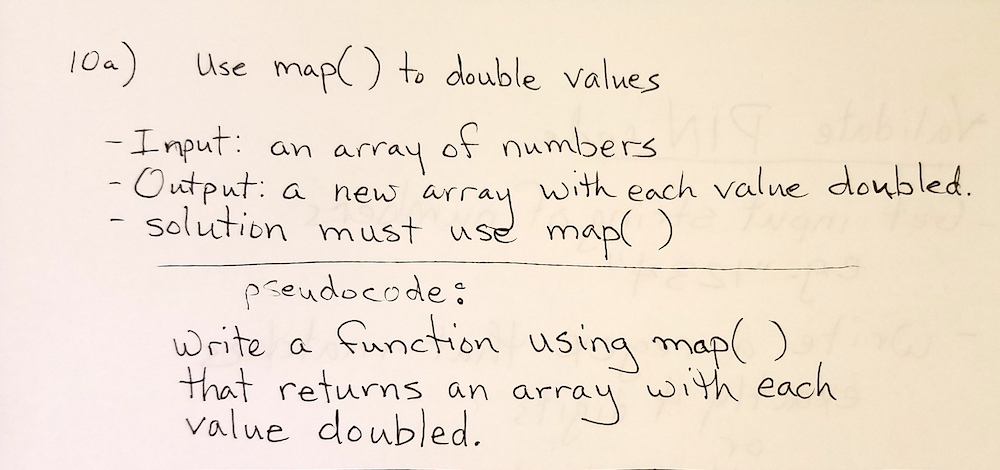 10a) Use map() to double values
- Input: an array of numbers
- Output: a new array with each value doubled.
- solution must use map()
pseudocode:
Write a function using map()
that returns an array with each
value doubled.